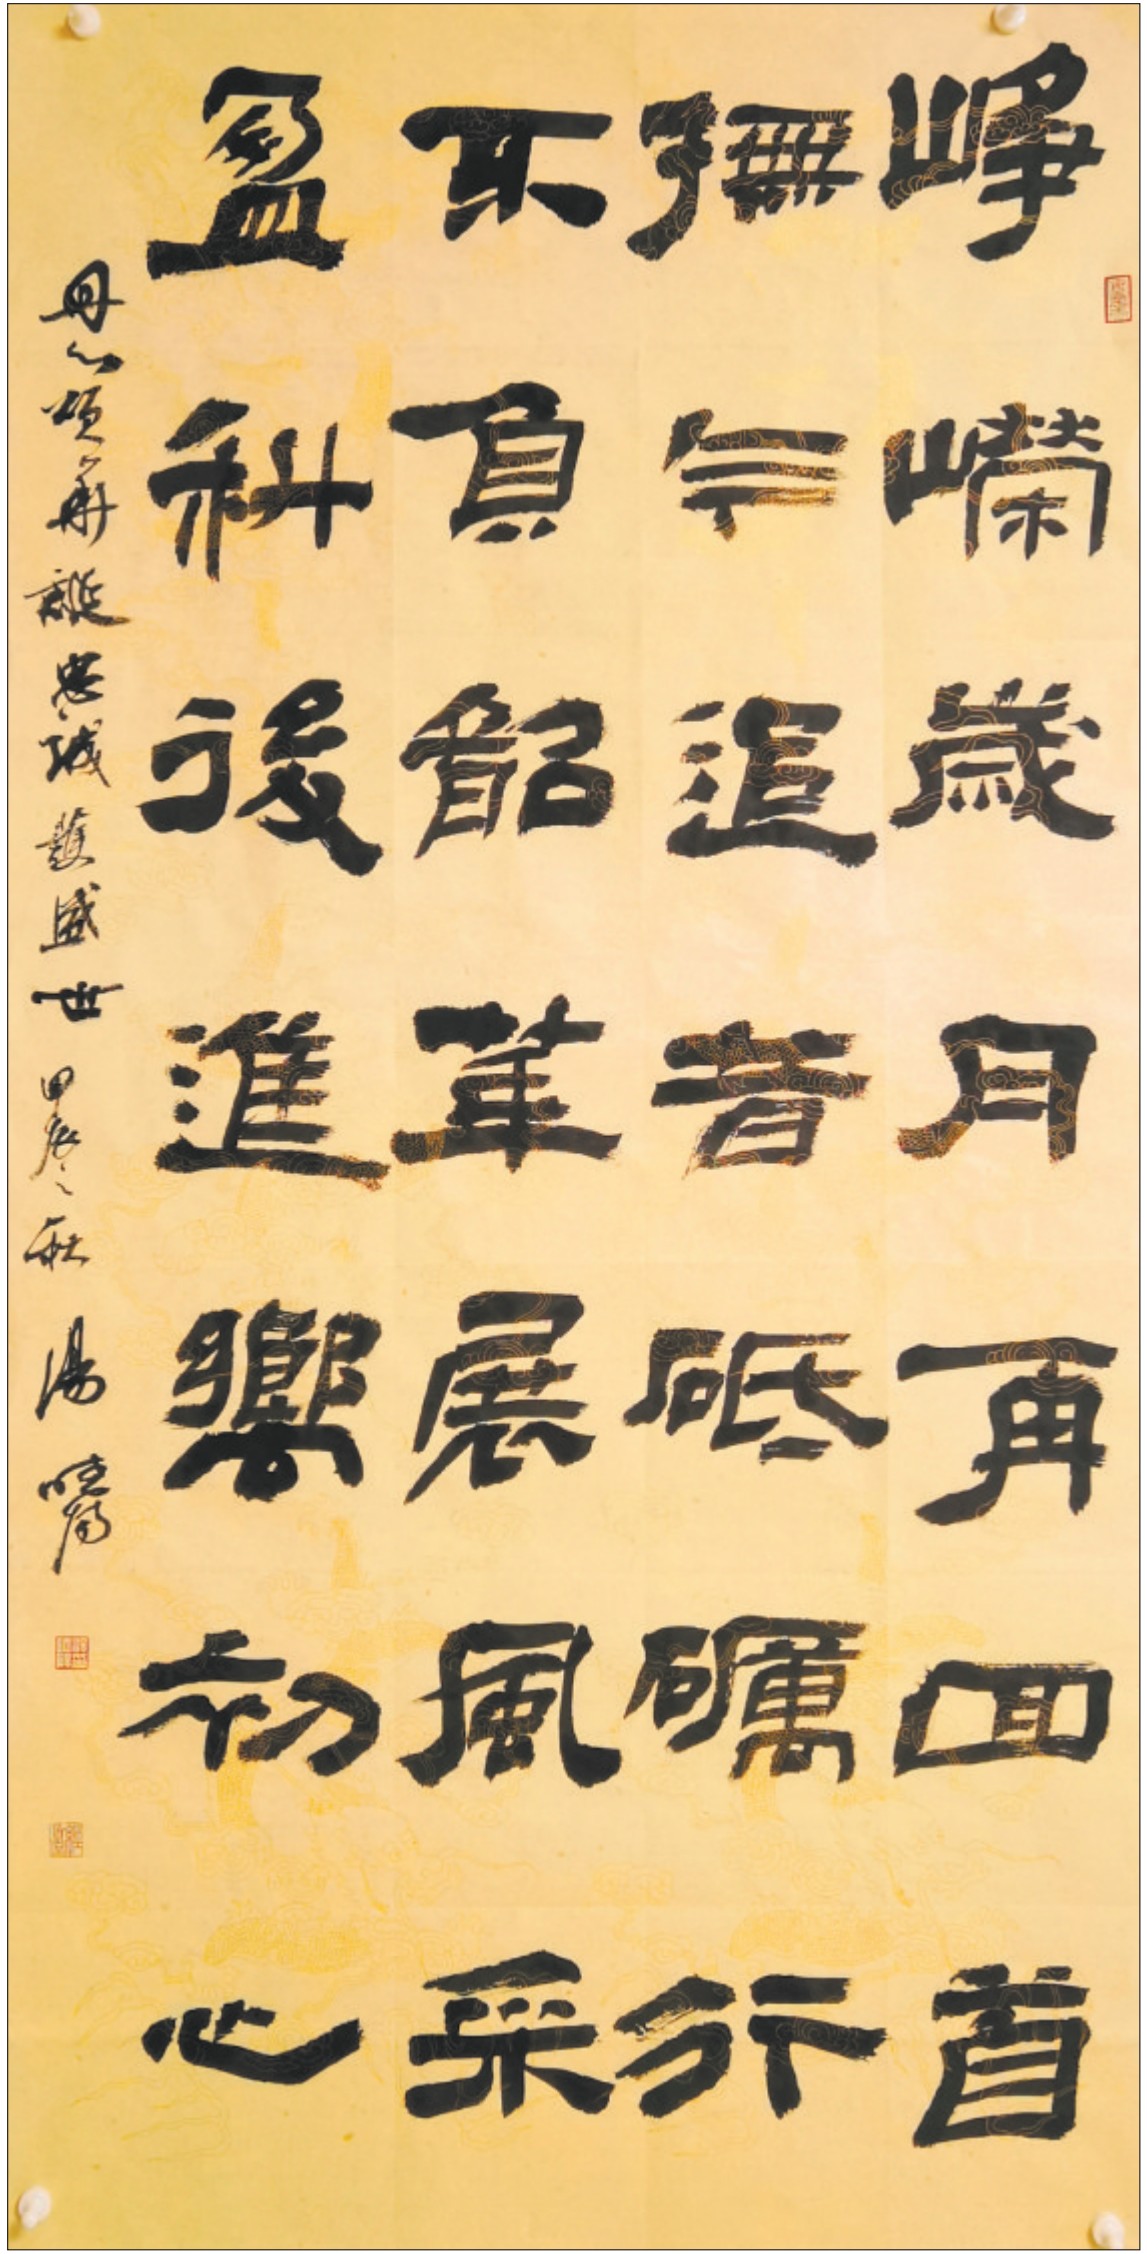 崢嶸歲月再回首
撫今追昔砥礪行
不負韶華展風采
盈科後進嚮初心
丹心頌華誕忠誠護盛世甲辰秋湯曉